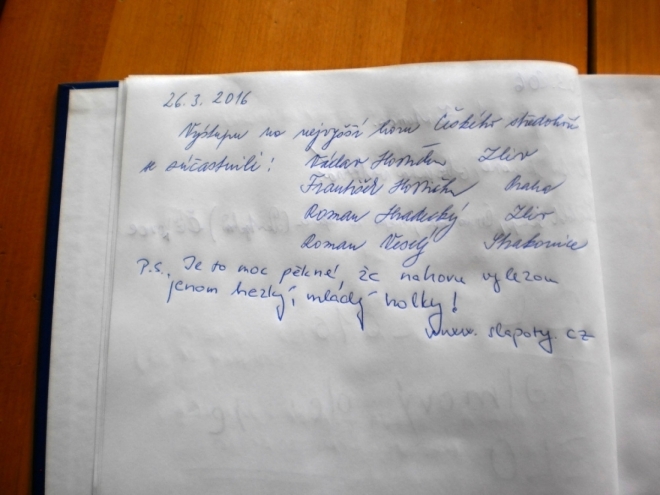 26.3. 2016
Výstupu na nejvyšší horu Českého středohoří
se zúčastnili: Václav Zliv
František Praha
Roman Hradecký, Zliv
Roman Veselý Strakonice
P.S., Je to moc pěkné že nahoru vylezou
jenom hezký, mladý holky!
www.slapoty.cz